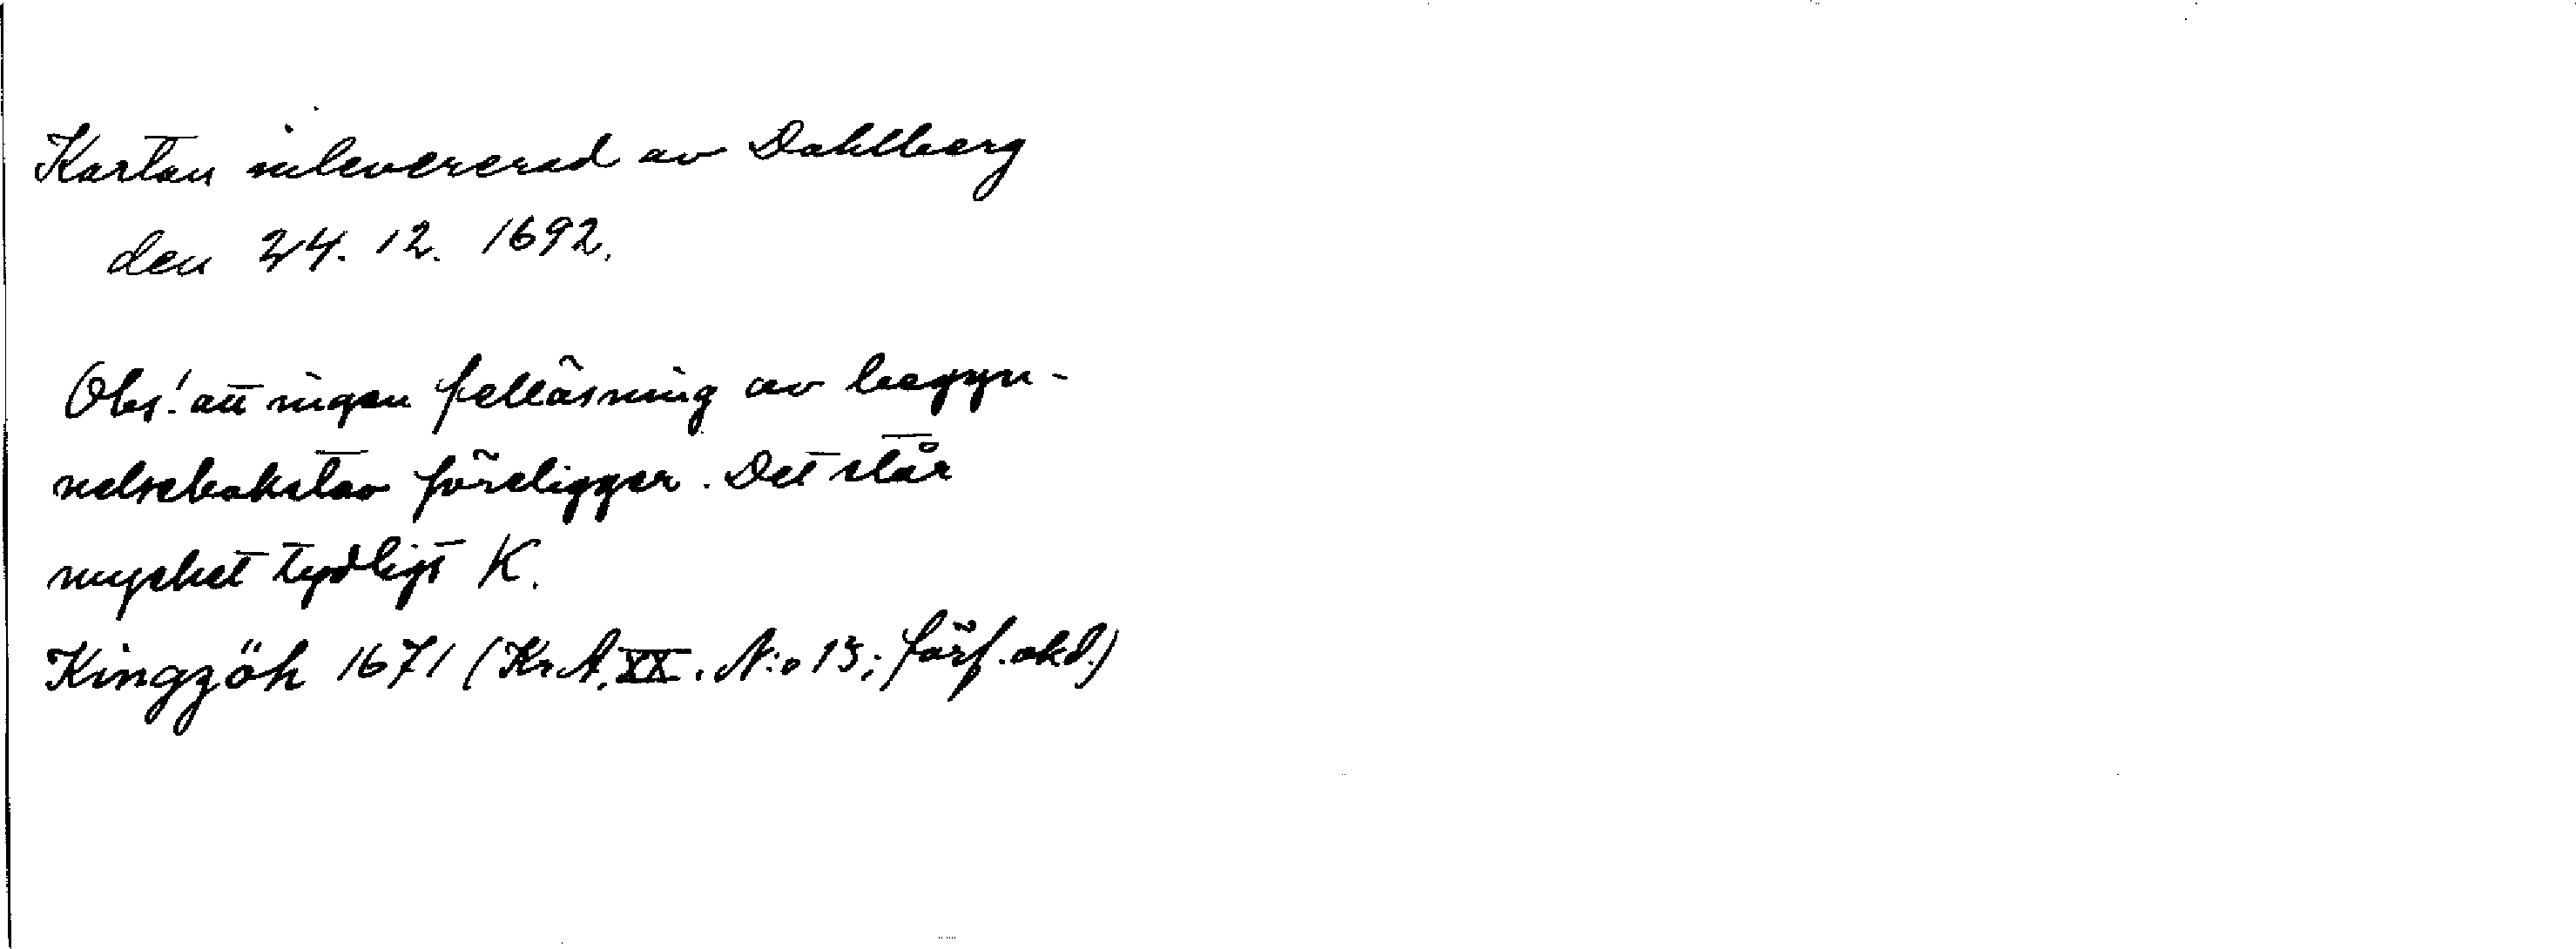 Kartan inlevererad av Dahlberg
den 24. 12. 1692.
Obs! att ingen felläsning av begyn-
nelsebokstav föreligger. Det står
mycket tydligt K.
Kingzöh 1671 (Kr.A. XX. N:o 13; förf. okd.)